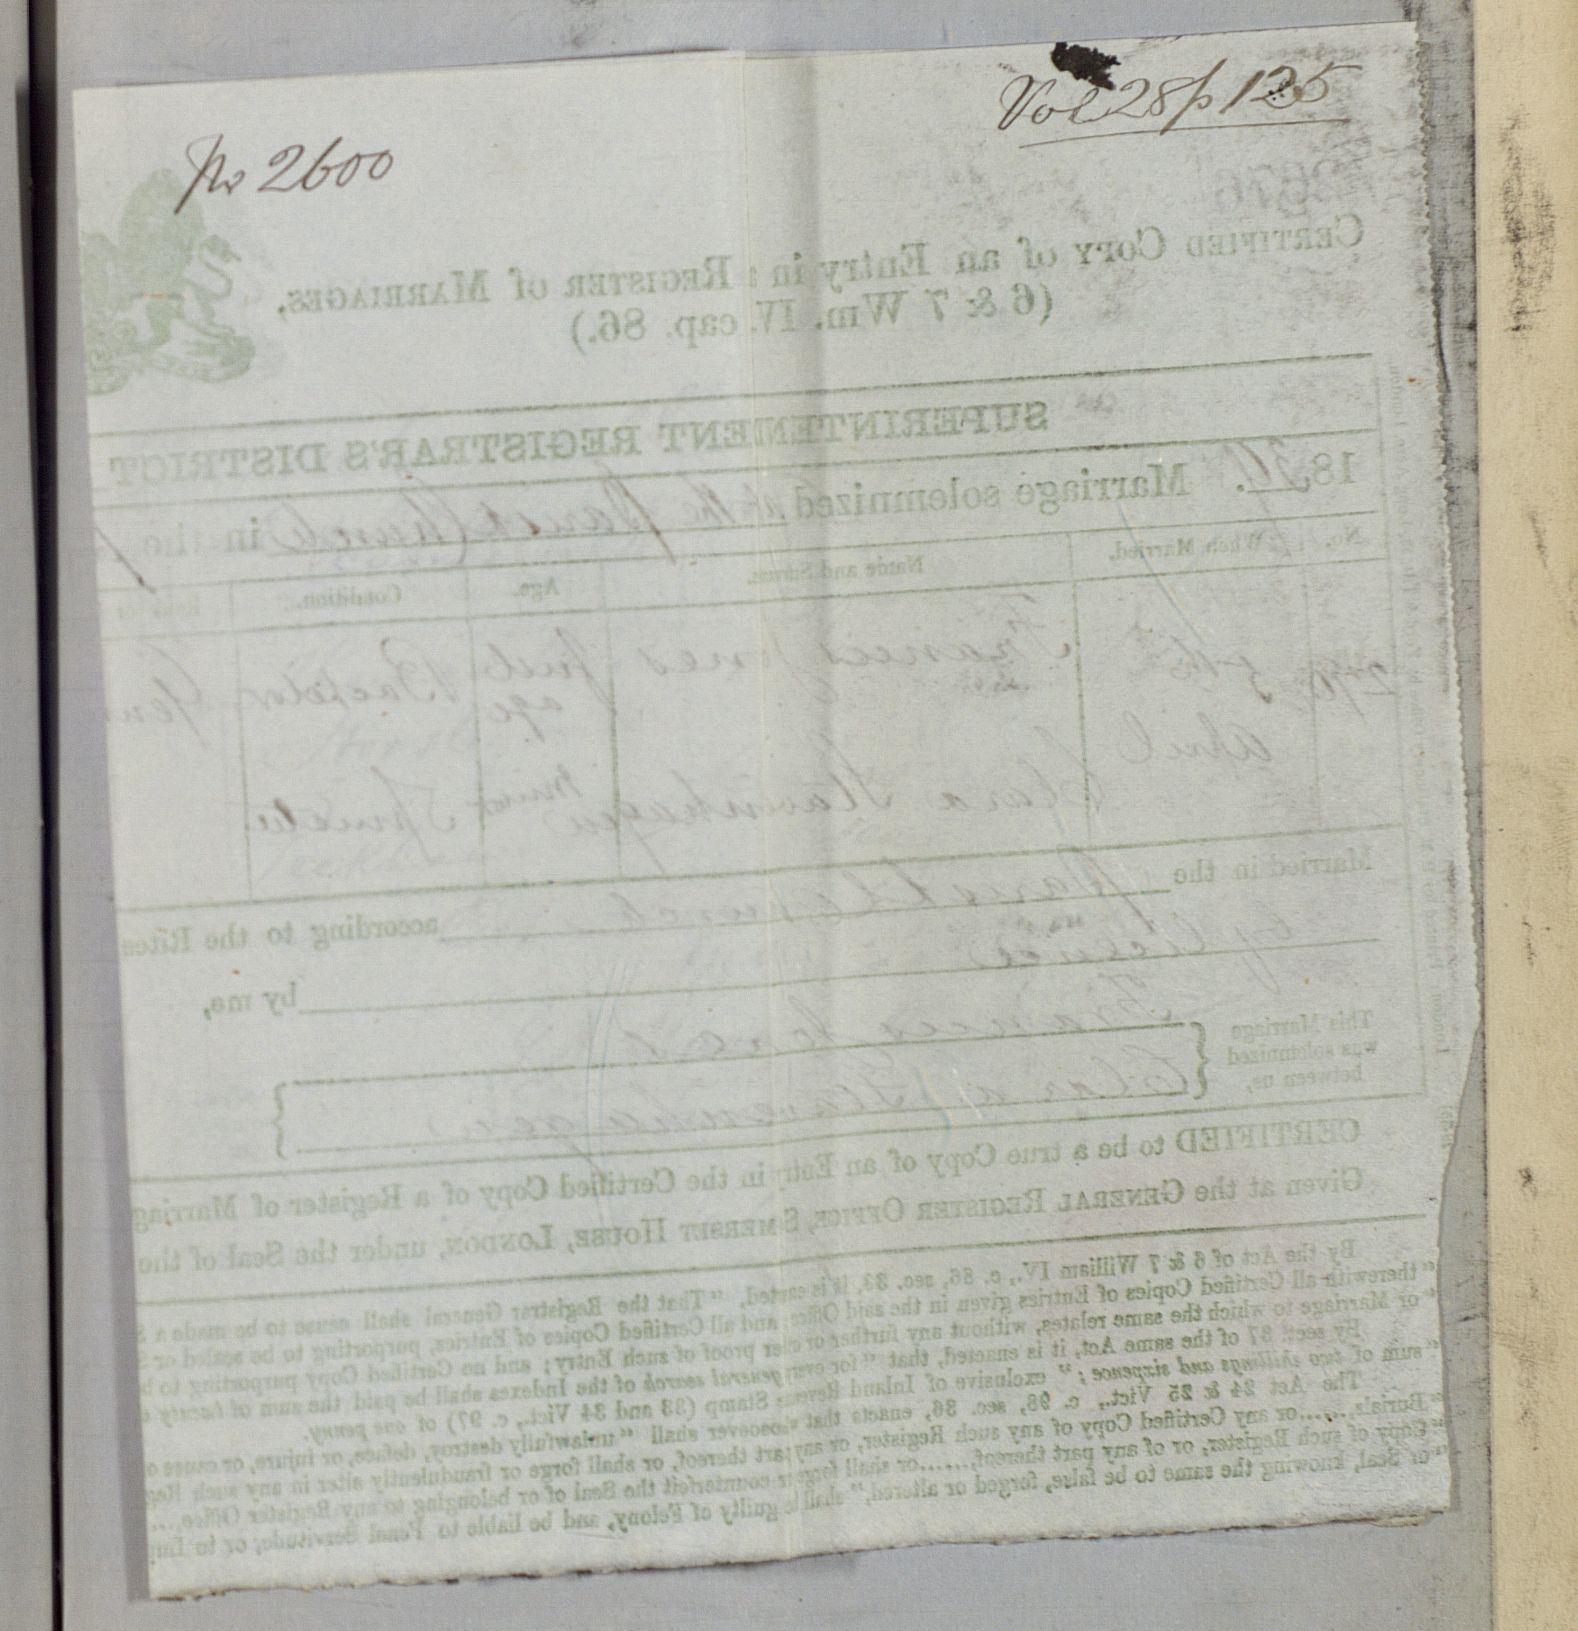 Vol 28 p 125
No 2600
CERTIFIED COPY of an Entry in a REGISTER of MARRIAGES.
(6 & 7 Wm. IV. cap. 86.)
SUPERINTENDENT REGISTRAR'S DISTRICT
18 Marriage solemnized at the Parish Church in the
No. When Married. Name and Surname. Age. Condition.
5th Francis Jones full age Bachelor
April
Clara Stavenhagen minor Spinster
Married in the Parish Church according to the Rites
by licence by me,
This Marriage was solemnized between us, { Francis Jones
Clara Stavenhagen }
CERTIFIED to be a true Copy of an Entry in the Certified Copy of a Register of Marriag
Given at the GENERAL REGISTER OFFICE, SOMERSET HOUSE, LONDON, under the Seal of the
By the Act of 6 & 7 William IV., c. 86, sec. 38, it is enacted, "That the Registrar General shall cause to be made a
"therewith all Certified Copies of Entries given in the said Office; and all Certified Copies of Entries, purporting to be sealed or
"or Marriage to which the same relates, without any further or other proof of such Entry; and no Certified Copy purporting to b
By sect. 37 of the same Act, it is enacted, that "for every general search of the Indexes shall be paid the sum of twenty
"sum of two shillings and sixpence;" exclusive of Inland Revenue Stamp (33 and 34 Vict., c. 97) of one penny.
The Act 24 & 25 Vict., c. 98, sec. 36, enacts that whosoever shall "unlawfully destroy, deface, or injure, or cause o
"Burials,......or any Certified Copy of any such Register, or any part thereof, or shall forge or fraudulently alter in any such Reg
"Copy of such Register, or of any part thereof,......or shall forge or counterfeit the Seal of or belonging to any Register Office,...
"or Seal, knowing the same to be false, forged or altered," shall be guilty of Felony, and be liable to Penal Servitude, or to Im